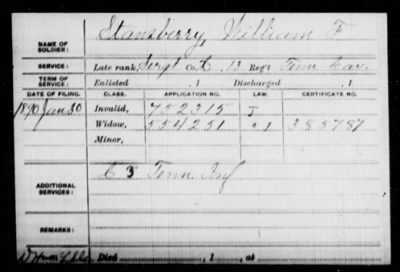 NAME OF SOLDIER: Stansberry, William F
SERVICE: Late rank, Sergt Co. K, 13 Reg't Tenn Cav.
TERM OF SERVICE: Enlisted , 1 Discharged , 1
DATE OF FILING. CLASS. APPLICATION NO. LAW. CERTIFICATE NO.
1890 Jun 30 Invalid, 752315 J
Widow, 554251 " 1 385787
Minor,
C 3 Tenn Inf
ADDITIONAL SERVICES:
REMARKS:
Died , 1 , at